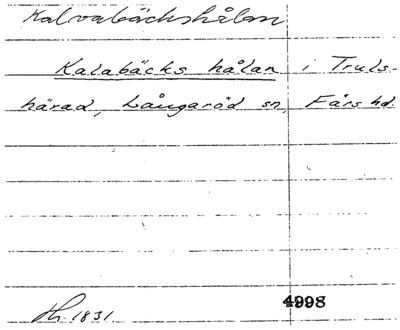 Kalvabäckshålan
Kalabäcks hålan i Truls-
härad, Långaröd sn, Färs hd.
Th. 1831. 4998